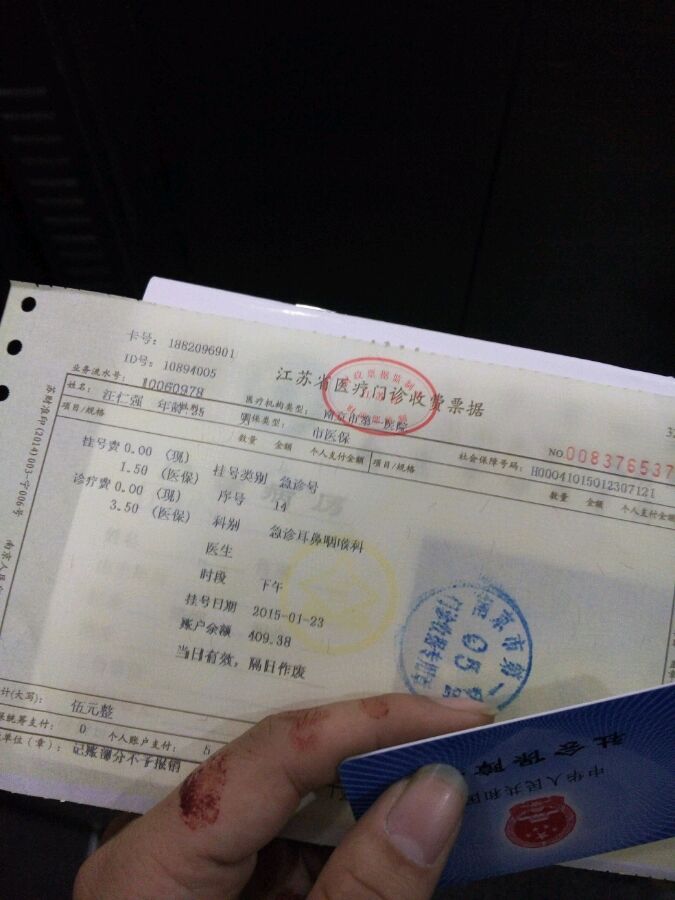 卡号: 1882096901
ID号: 10894005
业务流水号: 10060978
江苏省医疗门诊收费票据
姓名: 汪仁强 年龄: 35 男
医疗机构类型: 南京市第一医院
医保类型: 市医保
社会保障号码: H00041015012307121
NO 008376537
项目/规格 数量 金额 个人支付金额 项目/规格 数量 金额 个人支付金额
挂号费 0.00 (现) 挂号类别 急诊号
1.50 (医保) 序号 14
诊疗费 0.00 (现) 科别 急诊耳鼻咽喉科
3.50 (医保) 医生
时段 下午
挂号日期 2015-01-23
账户余额 409.38
当日有效, 隔日作废
计(大写): 伍元整
保统筹支付: 0 个人账户支付: 5
单位(章): 记账部分不予报销
社会保障
中华人民共和国